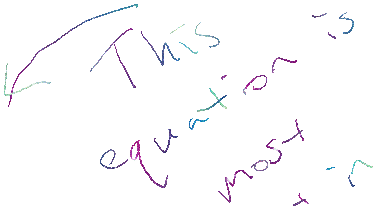 This
equation is
most